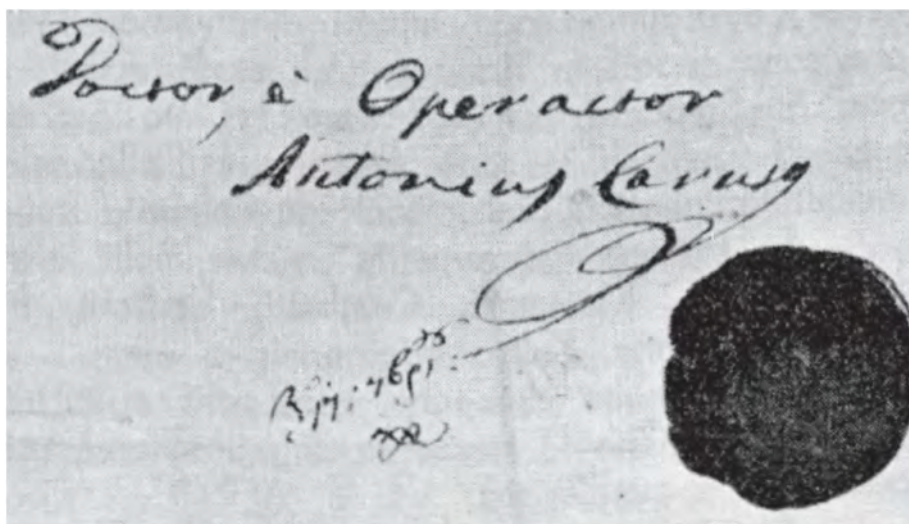 Doctor, è Operactor
Antonius Caruso